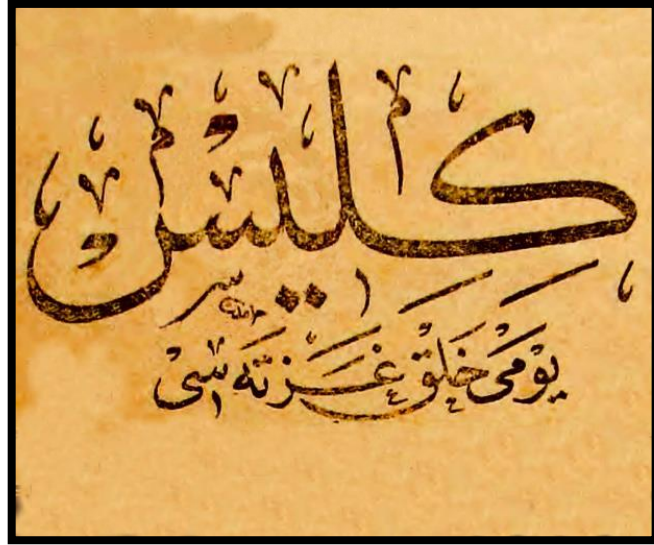 كليس
يومى خلق غزته سى